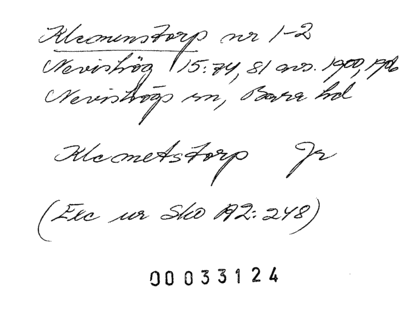 Klemenstorp nr 1-2
Nevishög 15:74, 81 avs. 1900, 1906
Nevishögs sn, Bara hd
Klemetstorp Jr
(Exc ur Sko A2:248)
00033124